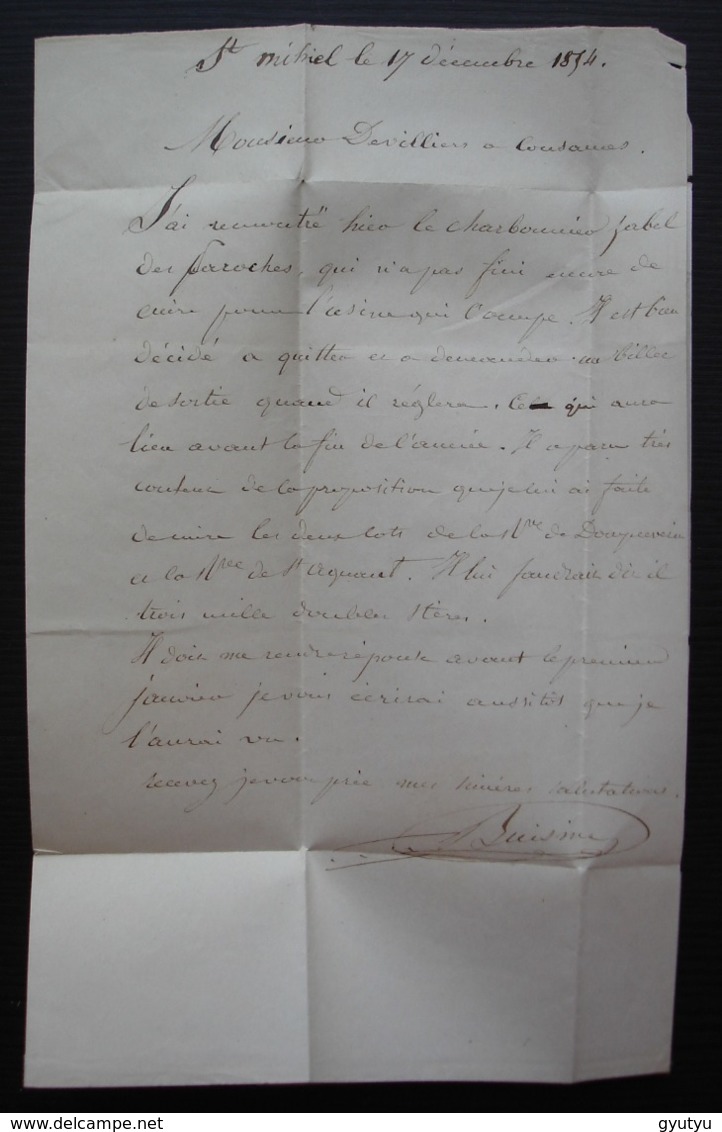 St mihiel le 17 décembre 1854.
Monsieur Devilliers a Cousances.
J'ai rencontré hier le charbonnier Jabel
des paroches, qui n'a pas fini encore de
cuire pour l'usine qui l'occupe. Il est bien
décidé a quitter et a demander un billet
de sortie quand il réglera. Ce qui aura
lieu avant la fin de l'année. Il a paru très
content de la proposition que je lui ai faite
de cuire les deux lots de la Vve de Dompcevrin
et la de St agnant. Il lui faudrait dit il
trois mille doubles stères.
Il doit me rendre réponse avant le premier
janvier je vous écrirai aussitôt que je
l'aurai vu.
recevez je vous prie mes sincères salutations.
Buisine
www.delcampe.net
gyutyu